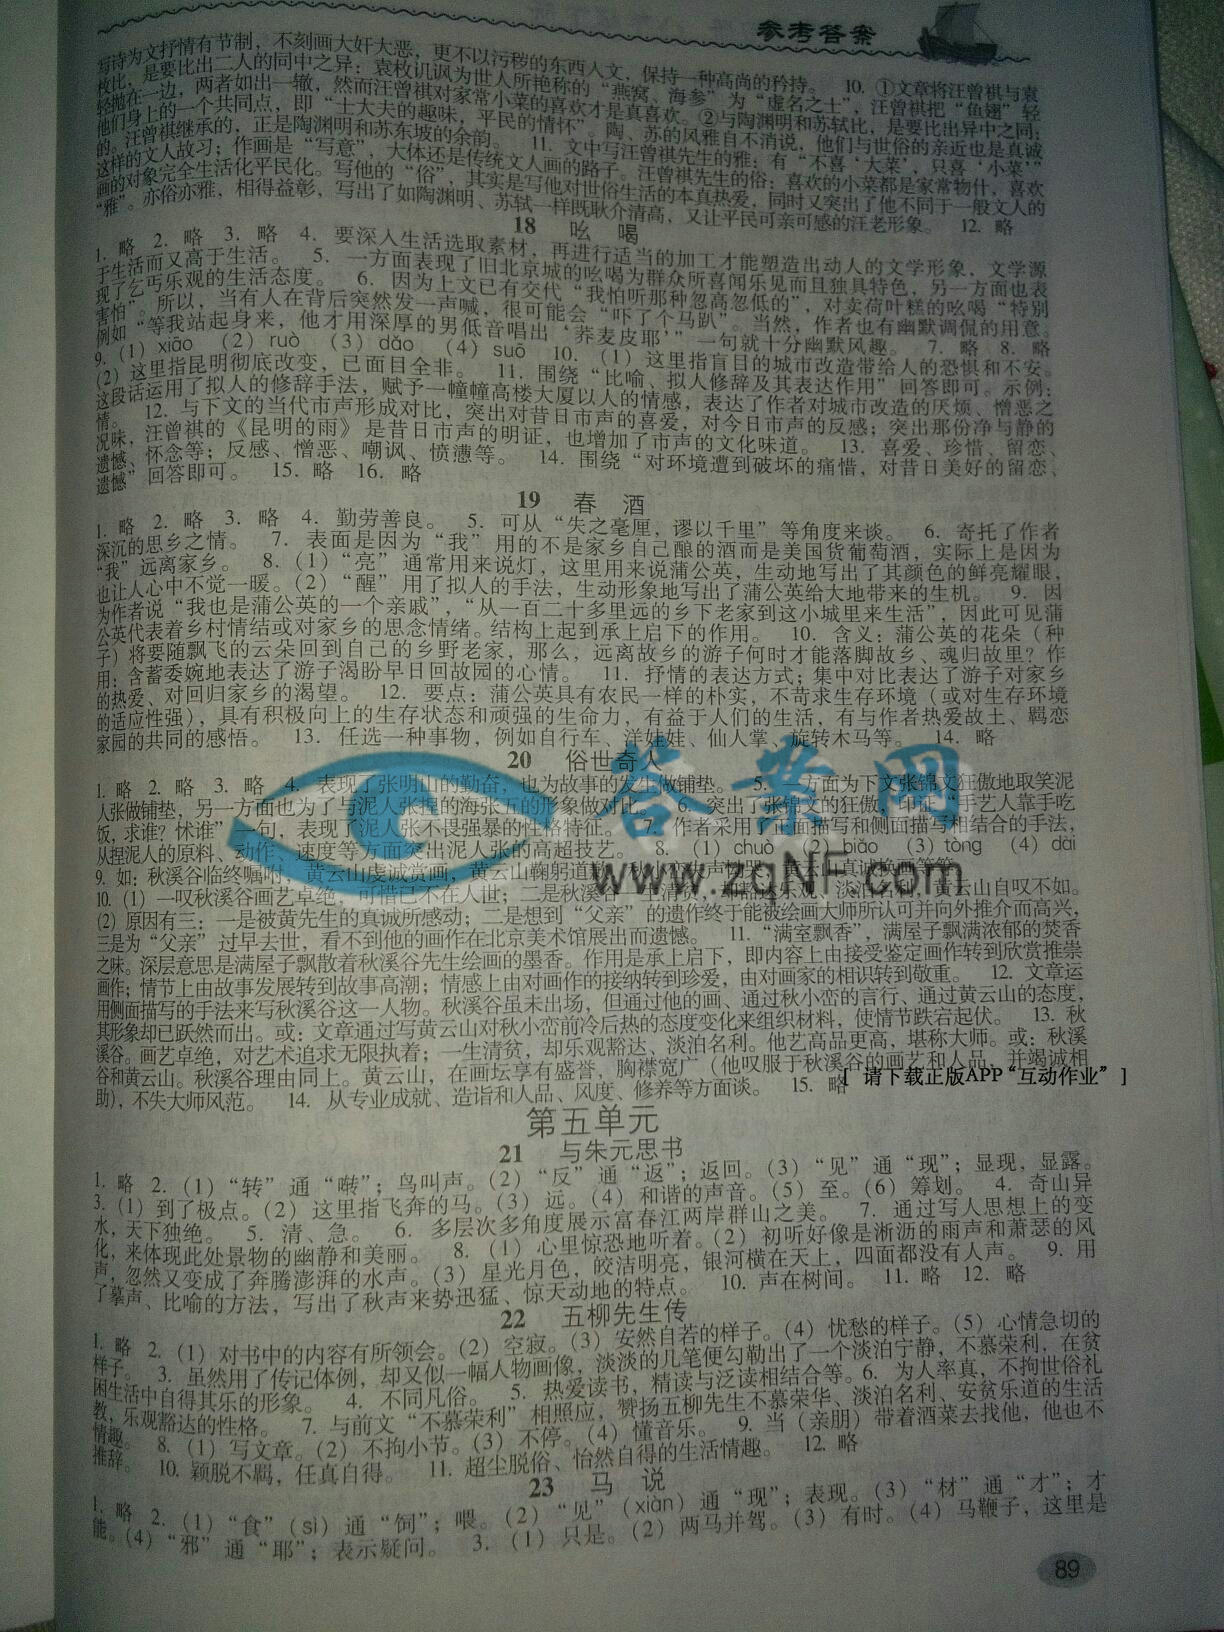 参考答案
写诗为文抒情有节制，不刻画大奸大恶，更不以污秽的东西入文，保持一种高尚的矜持。 10. ①文章将汪曾祺与袁
枚比，是要比出二人的同中之异：袁枚讥讽为世人所艳称的“燕窝、海参”为“虚名之士”，汪曾祺把“鱼翅”轻
轻抛在一边，两者如出一辙，然而汪曾祺对家常小菜的喜欢才是真喜欢。②与陶渊明和苏轼比，是要比出异中之同；
他们身上的一个共同点，即“士大夫的趣味，平民的情怀”。陶、苏的风雅自不消说，他们与世俗的亲近也是真诚
的。汪曾祺继承的，正是陶渊明和苏东坡的余韵。 11. 文中写汪曾祺先生的雅：有“不喜‘大菜’，只喜‘小菜’”
这样的文人故习；作画是“写意”，大体还是传统文人画的路子。汪曾祺先生的俗：喜欢的小菜都是家常物什，喜欢
画的对象完全生活化平民化。写他的“俗”，其实是写他对世俗生活的本真热爱，同时又突出了他不同于一般文人的
“雅”。亦俗亦雅，相得益彰，写出了如陶渊明、苏轼一样既耿介清高，又让平民可亲可感的汪老形象。 12. 略
18 吆喝
1. 略 2. 略 3. 略 4. 要深入生活选取素材，再进行适当的加工才能塑造出动人的文学形象，文学源
于生活而又高于生活。 5. 一方面表现了旧北京城的吆喝为群众所喜闻乐见而且独具特色，另一方面也表
现了乞丐乐观的生活态度。 6. 因为上文已有交代“我怕听那种忽高忽低的”，对卖荷叶糕的吆喝“特别
害怕”。所以，当有人在背后突然发一声喊，很可能会“吓了个马趴”。当然，作者也有幽默调侃的用意。
例如“等我站起身来，他才用深厚的男低音唱出‘荞麦皮耶’”一句就十分幽默风趣。 7. 略 8. 略
9. (1) xiāo (2) ruò (3) dǎo (4) suō 10. (1) 这里指盲目的城市改造带给人的恐惧和不安。
(2) 这里指昆明彻底改变，已面目全非。 11. 围绕“比喻、拟人修辞及其表达作用”回答即可。示例：
这段话运用了拟人的修辞手法，赋予一幢幢高楼大厦以人的情感，表达了作者对城市改造的厌烦、憎恶之
情。 12. 与下文的当代市声形成对比，突出对昔日市声的喜爱，对今日市声的反感；突出那份净与静的
况味，汪曾祺的《昆明的雨》是昔日市声的明证，也增加了市声的文化味道。 13. 喜爱、珍惜、留恋、
遗憾、怀念等；反感、憎恶、嘲讽、愤懑等。 14. 围绕“对环境遭到破坏的痛惜，对昔日美好的留恋、
遗憾”回答即可。 15. 略 16. 略
19 春酒
1. 略 2. 略 3. 略 4. 勤劳善良。 5. 可从“失之毫厘，谬以千里”等角度来谈。 6. 寄托了作者
深沉的思乡之情。 7. 表面是因为“我”用的不是家乡自己酿的酒而是美国货葡萄酒，实际上是因为
“我”远离家乡。 8. (1) “亮”通常用来说灯，这里用来说蒲公英，生动地写出了其颜色的鲜亮耀眼，
也让人心中不觉一暖。(2) “醒”用了拟人的手法，生动形象地写出了蒲公英给大地带来的生机。 9. 因
为作者说“我也是蒲公英的一个亲戚”，“从一百二十多里远的乡下老家到这小城里来生活”，因此可见蒲
公英代表着乡村情结或对家乡的思念情绪。结构上起到承上启下的作用。 10. 含义：蒲公英的花朵（种
子）将要随飘飞的云朵回到自己的乡野老家，那么，远离故乡的游子何时才能落脚故乡、魂归故里？作
用：含蓄委婉地表达了游子渴盼早日回故园的心情。 11. 抒情的表达方式；集中对比表达了游子对家乡
的热爱、对回归家乡的渴望。 12. 要点：蒲公英具有农民一样的朴实，不苛求生存环境（或对生存环境
的适应性强），具有积极向上的生存状态和顽强的生命力，有益于人们的生活，有与作者热爱故土、羁恋
家园的共同的感悟。 13. 任选一种事物，例如自行车、洋娃娃、仙人掌、旋转木马等。 14. 略
20 俗世奇人
1. 略 2. 略 3. 略 4. 表现了张明山的勤奋，也为故事的发生做铺垫。 5. 一方面为下文张锦文狂傲地取笑泥
人张做铺垫，另一方面也为了与泥人张捏的海张五的形象做对比。 6. 突出了张锦文的狂傲，印证“手艺人靠手吃
饭，求谁？怵谁”一句，表现了泥人张不畏强暴的性格特征。 7. 作者采用了正面描写和侧面描写相结合的手法，
从捏泥人的原料、动作、速度等方面突出泥人张的高超技艺。 8. (1) chuò (2) biāo (3) tòng (4) dāi
9. 如：秋溪谷临终嘱咐，黄云山虔诚赏画，黄云山鞠躬道歉，
10. (1) 一叹秋溪谷画艺卓绝，可惜已不在人世；二是秋溪谷一生清贫，却豁达乐观、淡泊名利，黄云山自叹不如。
(2) 原因有三：一是被黄先生的真诚所感动；二是想到“父亲”的遗作终于能被绘画大师所认可并向外推介而高兴，
三是为“父亲”过早去世，看不到他的画作在北京美术馆展出而遗憾。 11. “满室飘香”，满屋子飘满浓郁的焚香
之味。深层意思是满屋子飘散着秋溪谷先生绘画的墨香。作用是承上启下，即内容上由接受鉴定画作转到欣赏推崇
画作；情节上由故事发展转到故事高潮；情感上由对画作的接纳转到珍爱，由对画家的相识转到敬重。 12. 文章运
用侧面描写的手法来写秋溪谷这一人物。秋溪谷虽未出场，但通过他的画、通过秋小峦的言行、通过黄云山的态度，
其形象却已跃然而出。或：文章通过写黄云山对秋小峦前冷后热的态度变化来组织材料，使情节跌宕起伏。 13. 秋
溪谷。画艺卓绝，对艺术追求无限执着；一生清贫，却乐观豁达、淡泊名利。他艺高品更高，堪称大师。或：秋溪
谷和黄云山。秋溪谷理由同上。黄云山，在画坛享有盛誉，胸襟宽广（他叹服于秋溪谷的画艺和人品，并竭诚相
助），不失大师风范。 14. 从专业成就、造诣和人品、风度、修养等方面谈。 15. 略
[ 请下载正版APP“互动作业” ]
第五单元
21 与朱元思书
1. 略 2. (1) “转”通“啭”；鸟叫声。(2) “反”通“返”；返回。(3) “见”通“现”；显现，显露。
3. (1) 到了极点。(2) 这里指飞奔的马。(3) 远。(4) 和谐的声音。(5) 至。(6) 筹划。 4. 奇山异
水，天下独绝。 5. 清、急。 6. 多层次多角度展示富春江两岸群山之美。 7. 通过写人思想上的变
化，来体现此处景物的幽静和美丽。 8. (1) 心里惊恐地听着。(2) 初听好像是淅沥的雨声和萧瑟的风
声，忽然又变成了奔腾澎湃的水声。(3) 星光月色，皎洁明亮，银河横在天上，四面都没有人声。 9. 用
了摹声、比喻的方法，写出了秋声来势迅猛、惊天动地的特点。 10. 声在树间。 11. 略 12. 略
22 五柳先生传
1. 略 2. (1) 对书中的内容有所领会。(2) 空寂。(3) 安然自若的样子。(4) 忧愁的样子。(5) 心情急切的
样子。 3. 虽然用了传记体例，却又似一幅人物画像，淡淡的几笔便勾勒出了一个淡泊宁静，不慕荣利，在贫
困生活中自得其乐的形象。 4. 不同凡俗。 5. 热爱读书，精读与泛读相结合等。6. 为人率真，不拘世俗礼
教，乐观豁达的性格。 7. 与前文“不慕荣利”相照应，赞扬五柳先生不慕荣华、淡泊名利、安贫乐道的生活
情趣。 8. (1) 写文章。(2) 不拘小节。(3) 不停。(4) 懂音乐。 9. 当（亲朋）带着酒菜去找他，他也不
推辞。 10. 颖脱不羁，任真自得。 11. 超尘脱俗、怡然自得的生活情趣。 12. 略
23 马说
1. 略 2. (1) “食”（sì）通“饲”；喂。(2) “见”（xiàn）通“现”；表现。(3) “材”通“才”；才
能。(4) “邪”通“耶”；表示疑问。 3. (1) 只是。(2) 两马并驾。(3) 有时。(4) 马鞭子，这里是
89
答案网
www.zqNF.com